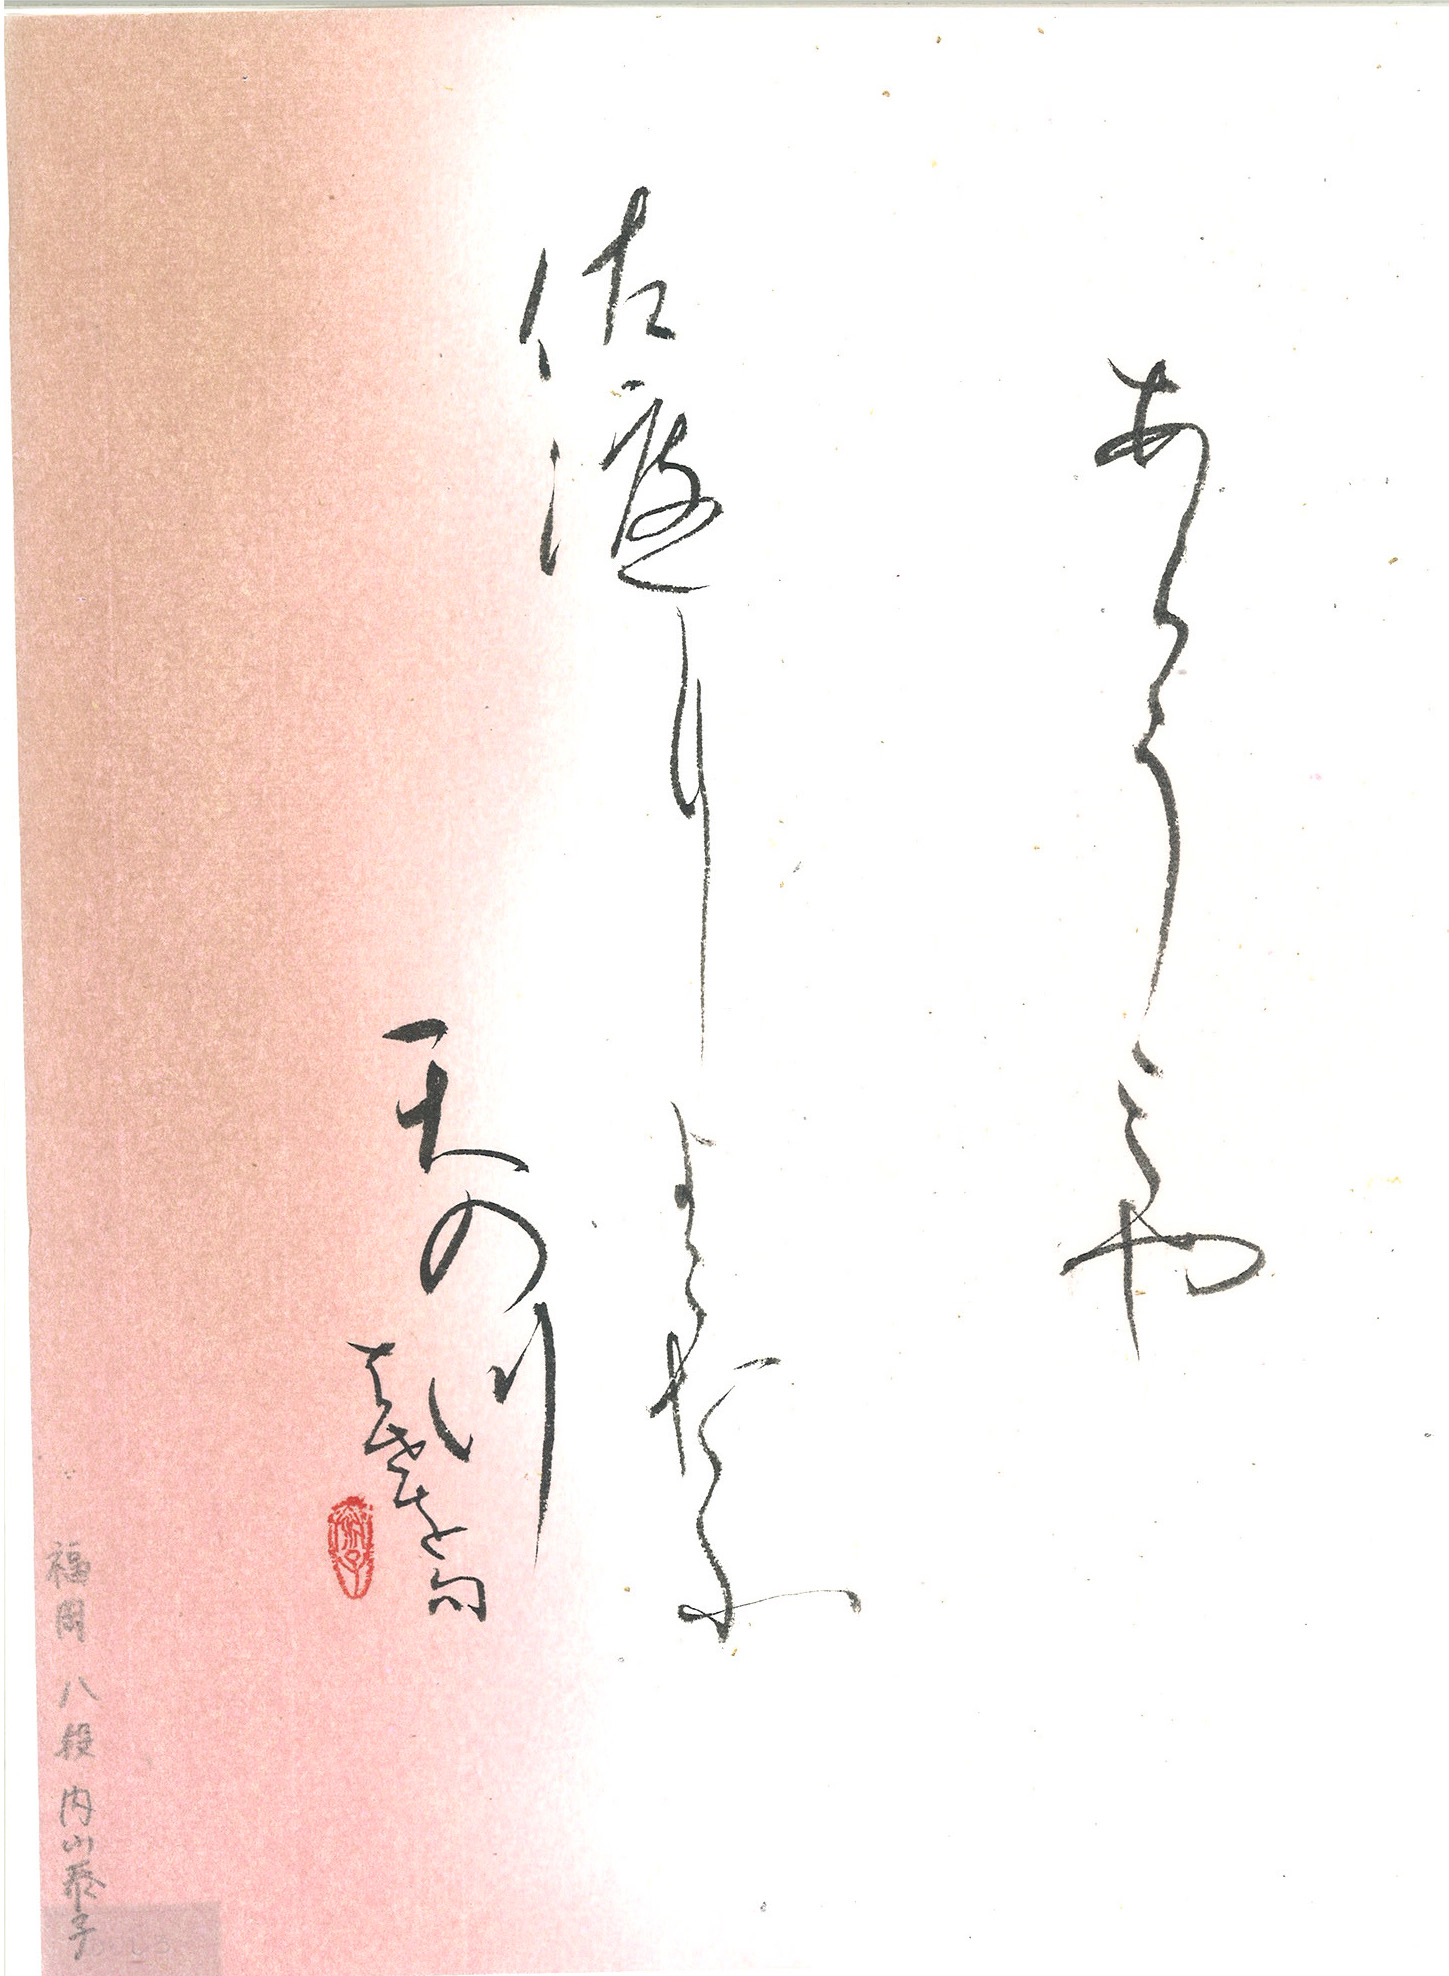 あらうみや
佐渡によこたふ
天の川
はせを句
福岡 八段 内山泰子